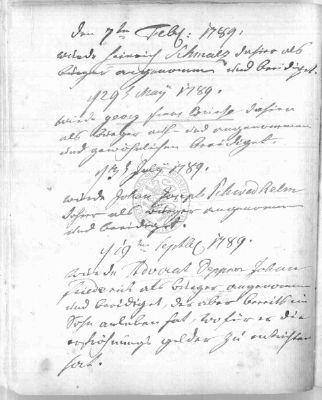 den 7ten Feb: 1789.
wurde Heinrich Schmalz dahier als
Bürger angenommen und beeidiget.
29 May 1789.
wurde Georg dahier
als Bürger auf- und angenommen
und gewöhnlichen beeidiget
July 1789.
wurde Johan Joseph
dahier als Bürger angenommen
und beeidiget.
19ten 1789.
wurde Advocat Johan
Friederich als Bürger angenommen
und beeidiget, der aber bereits ein
Sohn hat, wofür er die
gelder zu entrichten
hat.